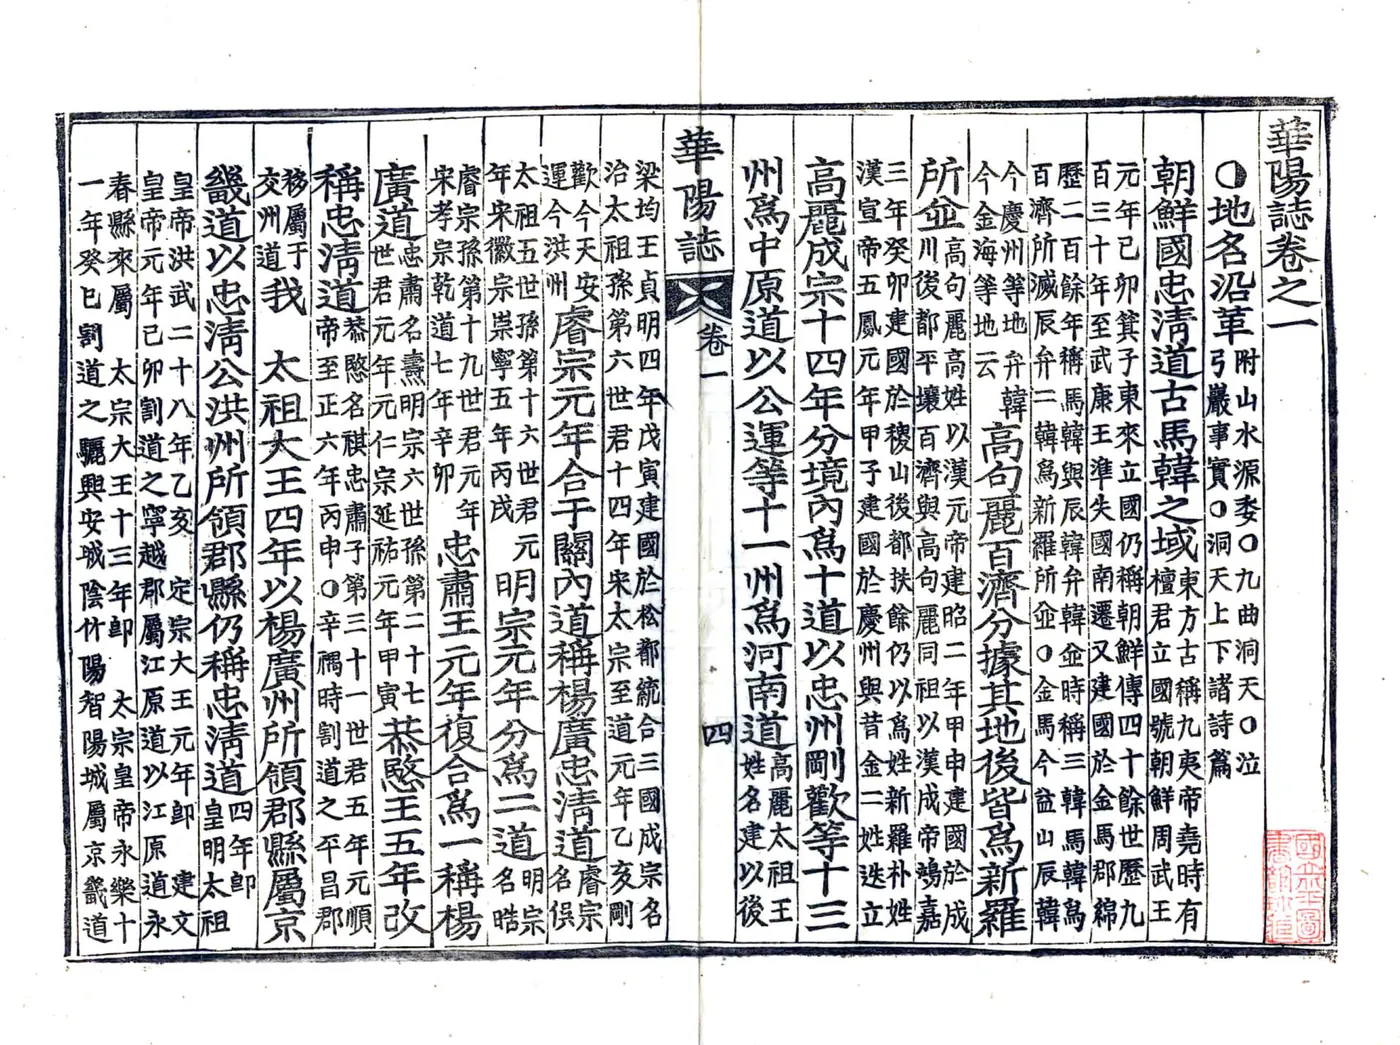 華陽誌卷之一
●地名沿革
附山水源委○九曲洞天○泣
弓巖事實○洞天上下諸詩篇
朝鮮國忠淸道古馬韓之域
東方古稱九夷帝堯時有
檀君立國號朝鮮周武王
元年己卯箕子東來立國仍稱朝鮮傳四十餘世歷九
百三十年至武康王準失國南遷又建國於金馬郡綿
歷二百餘年稱馬韓與辰韓弁韓並時稱三韓馬韓爲
百濟所滅辰弁二韓爲新羅所並○金馬今益山辰韓
今慶州等地弁韓
今金海等地云
高句麗百濟分據其地後皆爲新羅
所並
高句麗高姓以漢元帝建昭二年甲申建國於成
川後都平壤百濟與高句麗同祖以漢成帝鴻嘉
三年癸卯建國於稷山後都扶餘仍以爲姓新羅朴姓
漢宣帝五鳳元年甲子建國於慶州與昔金二姓迭立
高麗成宗十四年分境內爲十道以忠州剛歡等十三
州爲中原道以公運等十一州爲河南道
高麗太祖王
姓名建以後
華陽誌 卷一 四
梁均王貞明四年戊寅建國於松都統合三國成宗名
治太祖孫第六世君十四年宋太宗至道元年乙亥剛
歡今天安
運今洪州
睿宗元年合于關內道稱楊廣忠淸道
睿宗
名俁
太祖五世孫第十六世君元
年宋徽宗崇寧五年丙戌
明宗元年分爲二道
明宗
名晧
睿宗孫第十九世君元年
宋孝宗乾道七年辛卯
忠肅王元年復合爲一稱楊
廣道
忠肅名燾明宗六世孫第二十七
世君元年元仁宗延祐元年甲寅
恭愍王五年改
稱忠淸道
恭愍名祺忠肅子第三十一世君五年元順
帝至正六年丙申○辛禑時割道之平昌郡
移屬于
交州道
我 太祖大王四年以楊廣州所領郡縣屬京
畿道以忠淸公洪州所領郡縣仍稱忠淸道
四年卽
皇明太祖
皇帝洪武二十八年乙亥 定宗大王元年卽 建文
皇帝元年己卯割道之寧越郡屬江原道以江原道永
春縣來屬 太宗大王十三年卽 太宗皇帝永樂十
一年癸巳割道之驪興安城陰竹陽智陽城屬京畿道